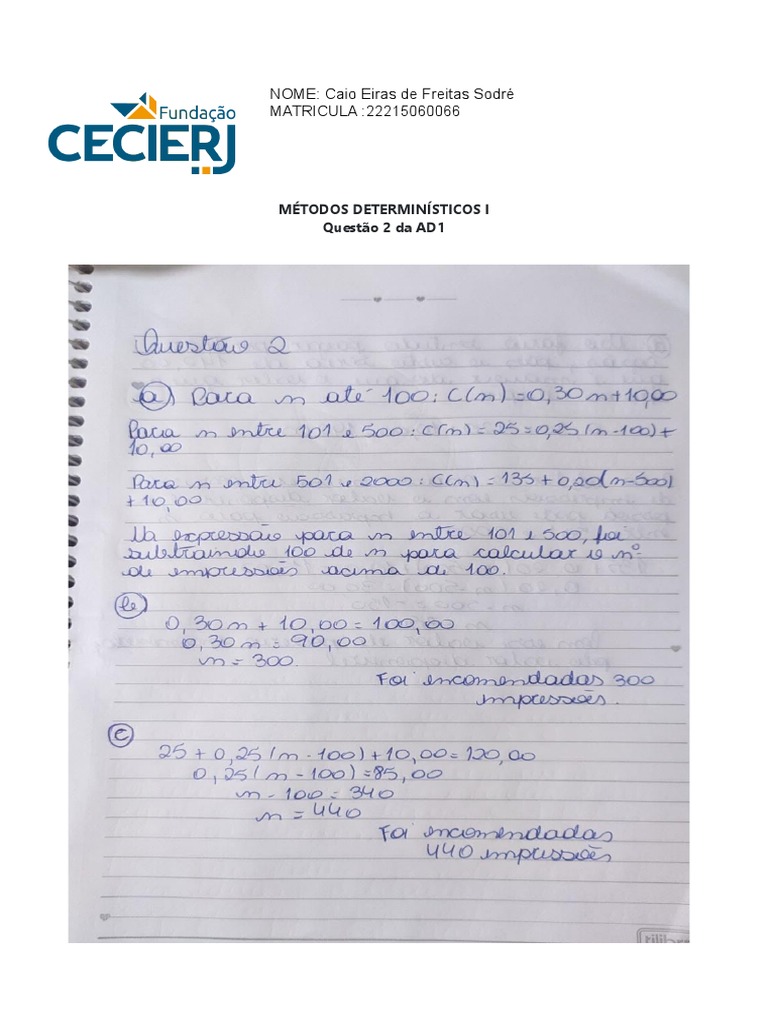 NOME: Caio Eiras de Freitas Sodré
MATRICULA :22215060066
Fundação
CECIERJ
MÉTODOS DETERMINÍSTICOS I
Questão 2 da AD1
Questão 2
a) Para n até 100: C(n) = 0,30n+10,00
Para n entre 101 e 500: C(n) = 25 = 0,25(n-100)+
10,00
Para n entre 501 e 2000: C(n) = 135 + 0,20(n-500)
+10,00
Na expressão para n entre 101 e 500, foi
subtraindo 100 de n para calcular o nº
de impressões acima de 100.
b)
0,30n + 10,00 = 100,00
0,30n = 90,00
n = 300.
Foi encomendadas 300
impressões.
c
25 + 0,25(n - 100) + 10,00 = 120,00
0,25(n - 100) = 85,00
n - 100 = 340
n = 440
Foi encomendadas
440 impressões